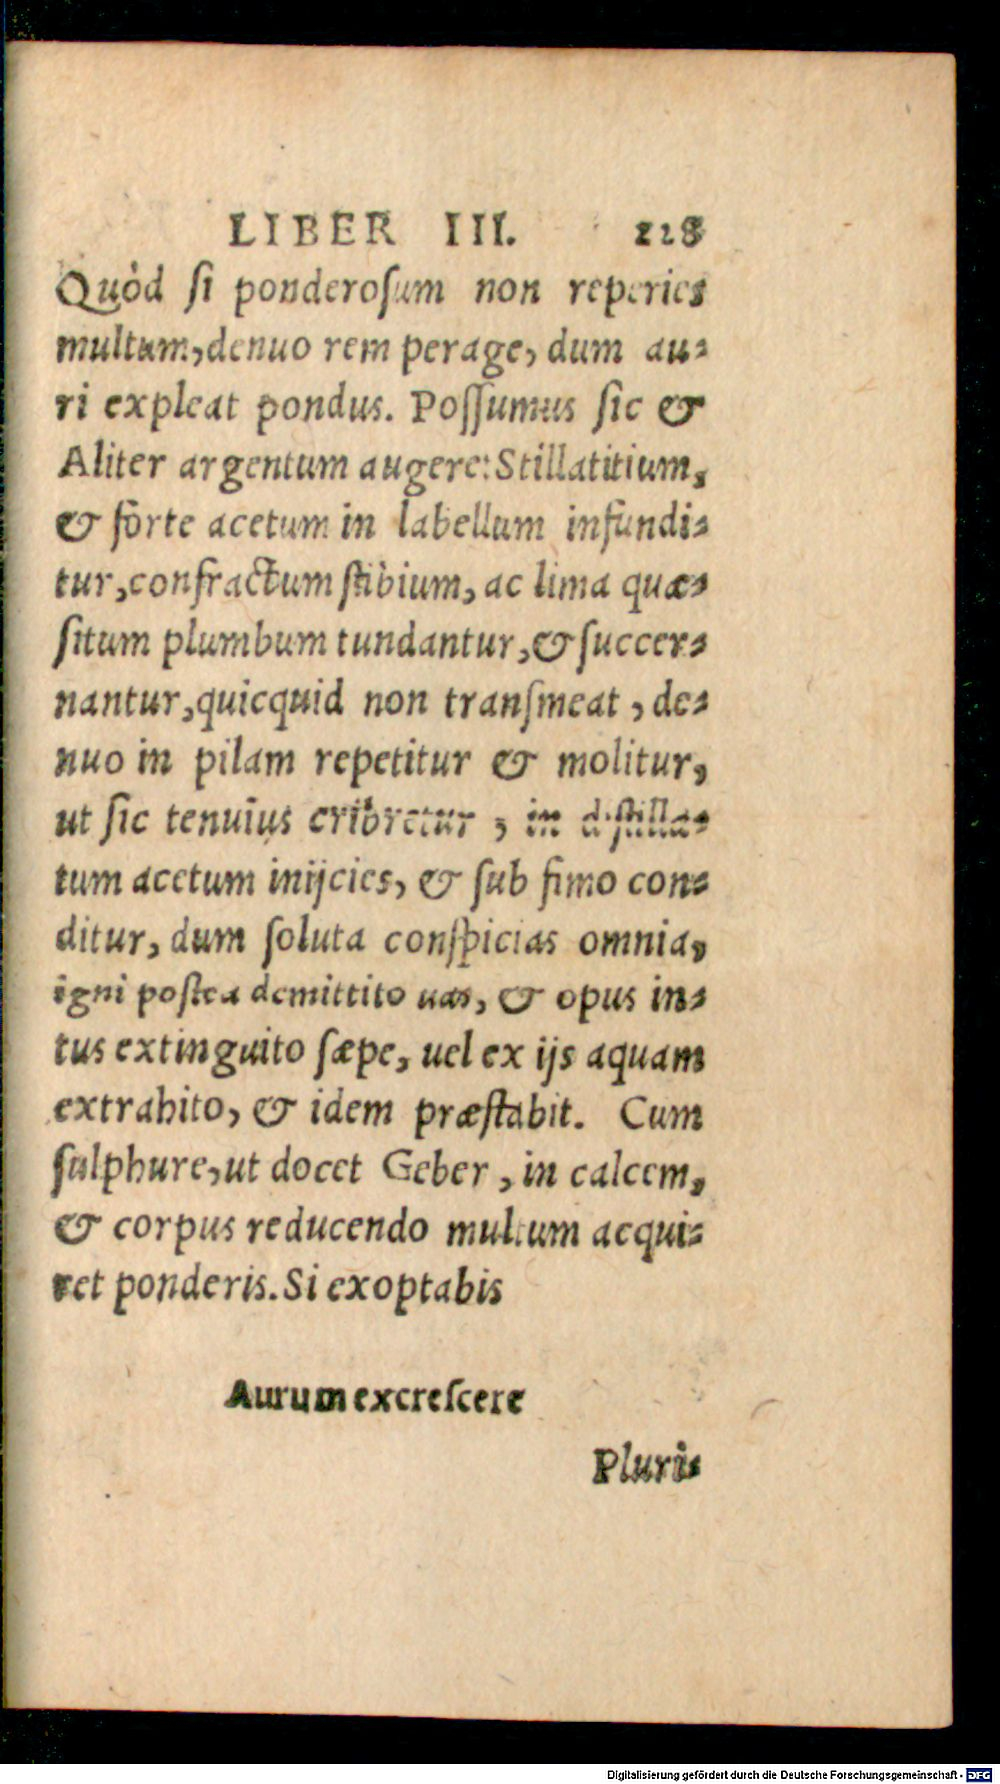 LIBER III. 118
Quòd ſi ponderoſum non reperies
multum, denuo rem perage, dum au-
ri expleat pondus. Poſſumus ſic &
Aliter argentum augere: Stillatitium,
& forte acetum in labellum infundi-
tur, confractum ſtibium, ac lima quæ-
ſitum plumbum tundantur, & ſuccer-
nantur, quicquid non tranſmeat, de-
nuo in pilam repetitur & molitur,
ut ſic tenuius cribretur, in diſtilla-
tum acetum inijcies, & ſub fimo con-
ditur, dum ſoluta conſpicias omnia,
igni poſtea demittito uas, & opus in-
tus extinguito ſæpe, uel ex ijs aquam
extrahito, & idem præſtabit. Cum
ſulphure, ut docet Geber, in calcem,
& corpus reducendo multum acqui-
ret ponderis. Si exoptabis
Aurum excreſcere
Pluri-
Digitalisierung gefördert durch die Deutsche Forschungsgemeinschaft - DFG